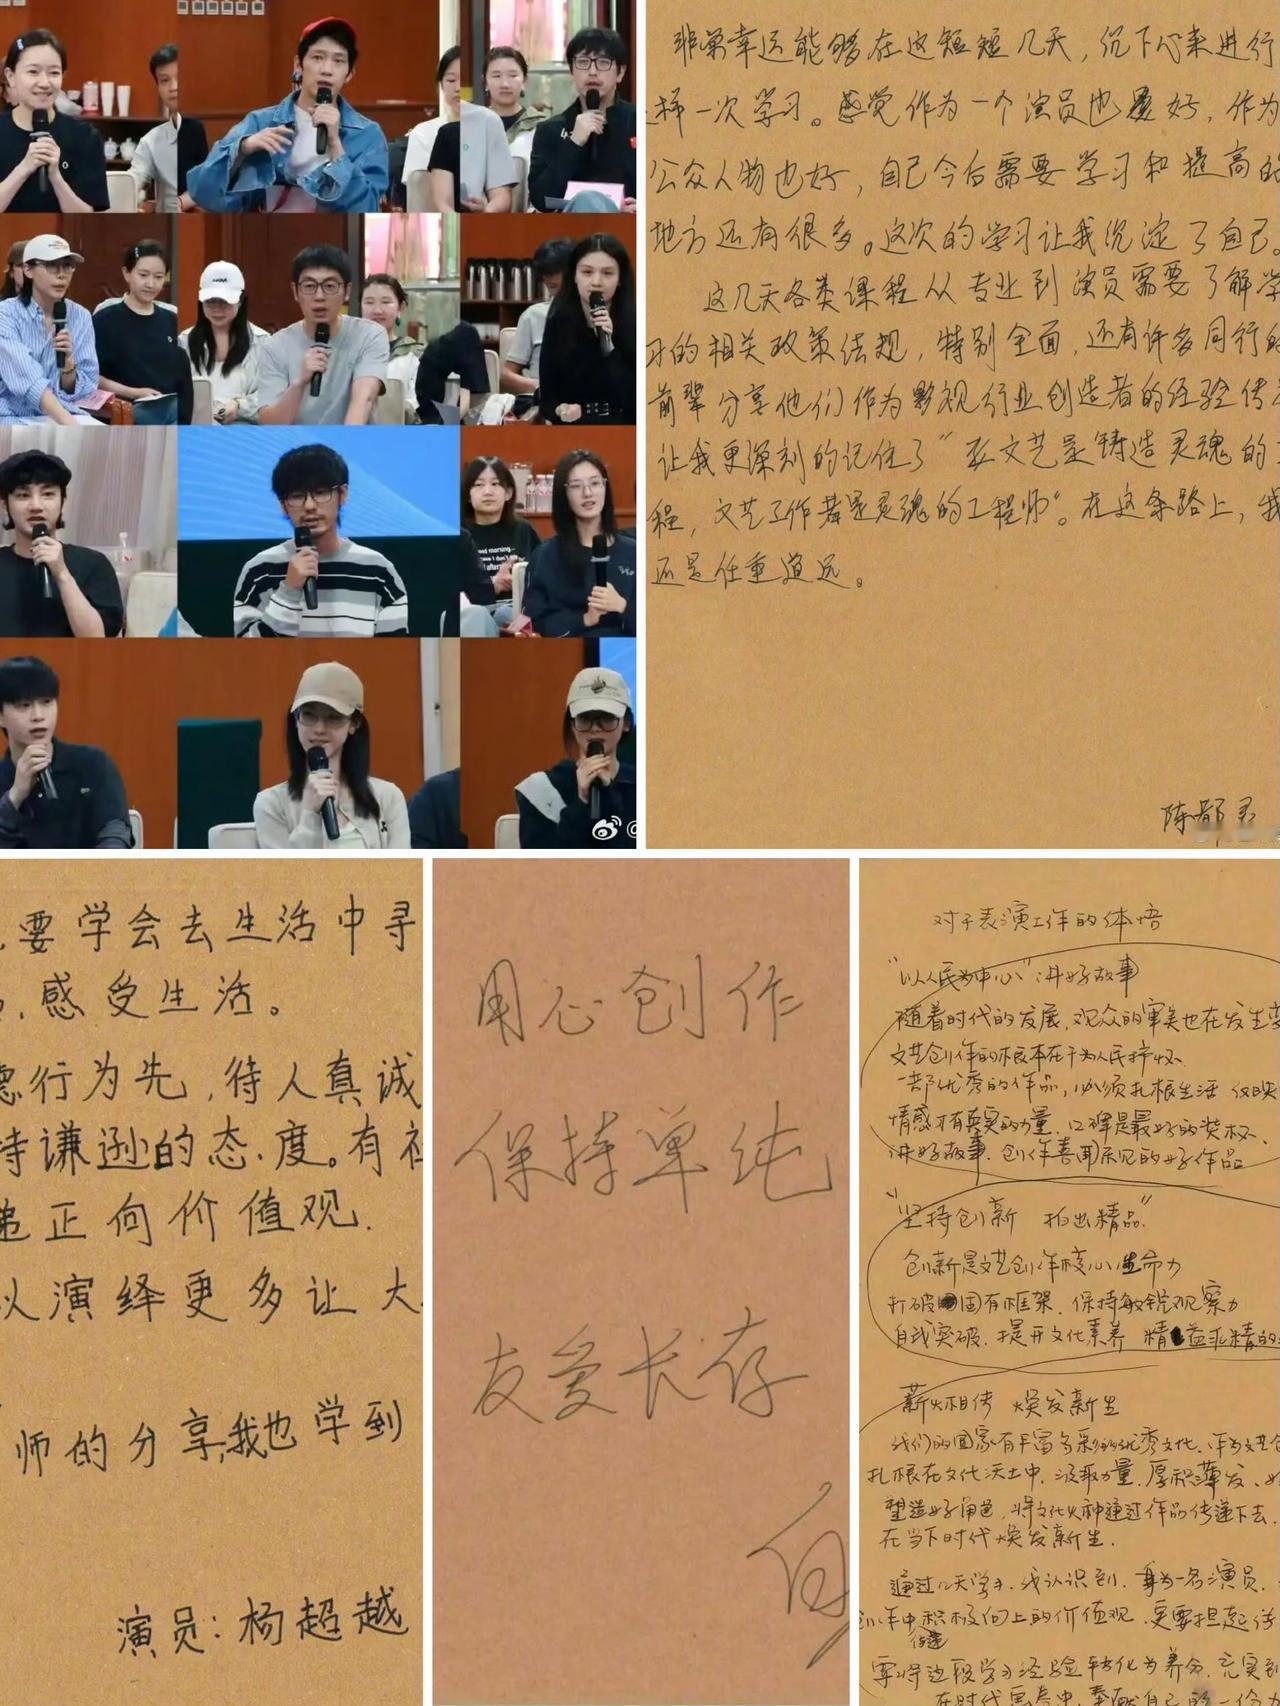 非常幸运能够在这短短几天，沉下心来进行
样一次学习。感觉作为一个演员也好，作为
公众人物也好，自己今后需要学习和提高的
地方还有很多。这次的学习让我沉淀了自己。
这几天各类课程从专业到演员需要了解学
习的相关政策法规，特别全面，还有许多同行的
前辈分享他们作为影视行业创造者的经验传
让我更深刻的记住了“文艺是铸造灵魂的工
程，文艺工作者是灵魂的工程师”。在这条路上，我
还是任重道远。
陈都灵
要学会去生活中寻
感受生活。
德行为先，待人真诚
持谦逊的态度。有社
递正向价值观.
以演绎更多让大
师的分享,我也学到
演员：杨超越
用心创作
保持单纯
友爱长存
白
对于表演工作的体悟
“以人民为中心”讲好故事
随着时代的发展,观众的审美也在发生变
文艺创作的根本在于为人民抒怀
一部优秀的作品，必须扎根生活 反映
情感才有真实的力量，口碑是最好的奖杯、
讲好故事、创作喜闻乐见的好作品
“坚持创新 拍出精品”
创新是文艺创作核心生命力
打破固有框架、保持敏锐观察力
自我突破、提升文化素养 精益求精的
薪火相传 焕发新生
我们的国家有丰富多彩的优秀文化、作为文艺
扎根在文化沃土中、汲取力量、厚积薄发、
塑造好角色、将文化火种通过作品传递下去、
在当下时代焕发新生.
通过几天学习、我认识到、身为一名演员、
创作中积极向上的价值观、更要担起
传递
要将这段学习经验转化为养分、充实到
在时代画卷中、奉献自己的一份力